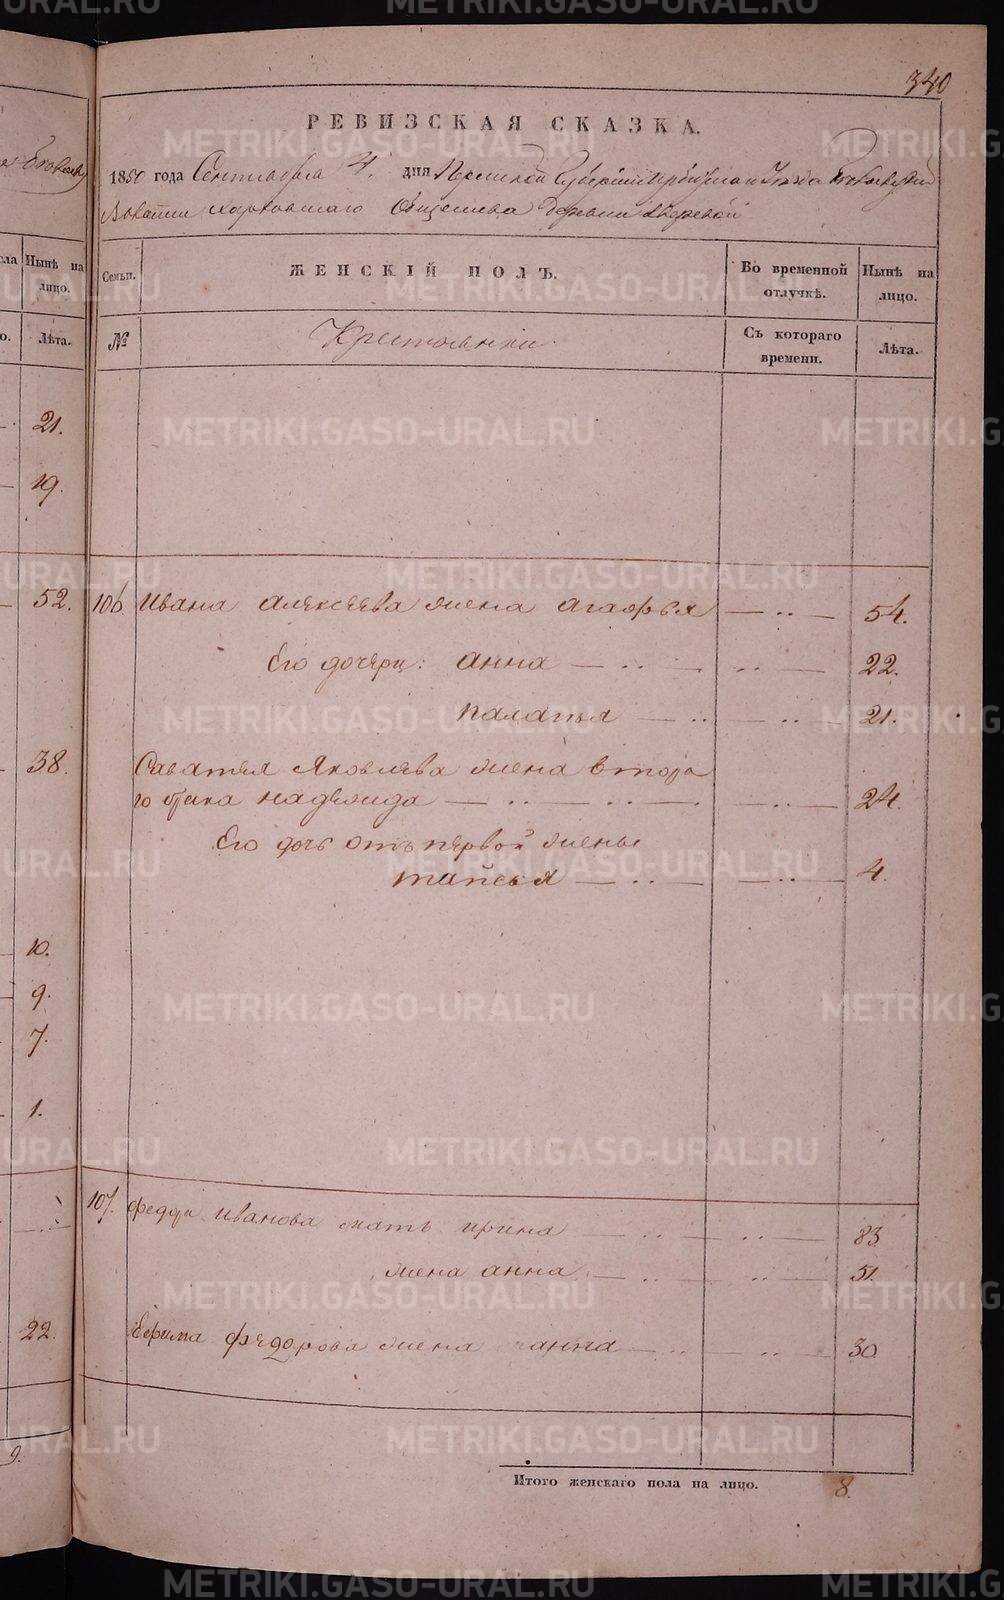 340
РЕВИЗСКАЯ СКАЗКА.
1850 года Сентября 4. дня Пермской Губернии Ирбитскаго Уезда
Волости Харловскаго Общества деревни Зверевой
сла Нынѣ на лицо.
Семьи. ЖЕНСКІЙ ПОЛЪ. Во временной отлучкѣ. Нынѣ на лицо.
о. Лѣта. № Крестьянки Съ котораго времени. Лѣта.
21.
19.
52. 106. Ивана алексѣева жена агафья — .. — 54.
Его дочери: анна — .. — .. — 22.
палагья — .. — .. — 21.
38. Саватья Яковлева жена втора
го брака надежда — .. — .. — . — .. — 24.
Его дочь отъ первой жены
таисья — .. — — .. — 4.
10.
9.
7.
1.
107. Федора иванова мать ирина — .. — .. — 83.
жена анна — .. — .. — 51.
22. Ефима федорова жена анна — .. — .. — 30.
9.
Итого женскаго пола на лицо. 8.
METRIKI.GASO-URAL.RU